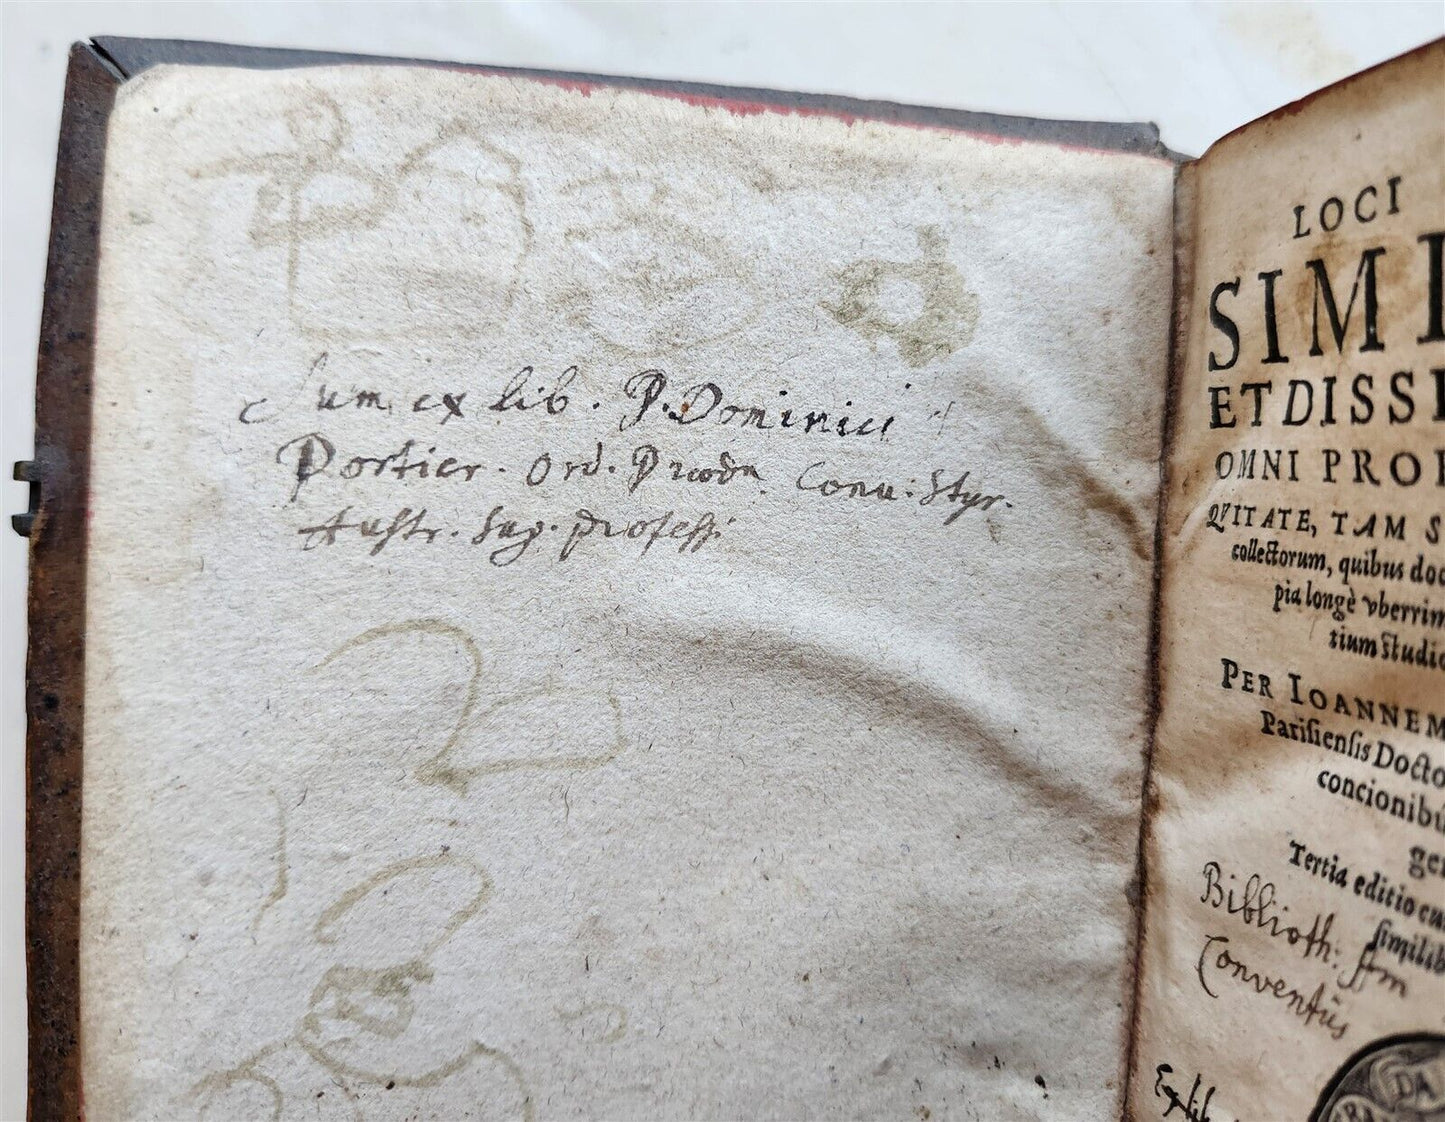 Sum ex lib. P. Dominici
Portier. Ord. Prædm. Conu: Styr.
Austr. Sup. professi.
LOCI
SIMI
ET DISSI
OMNI PROP
QVITATE, TAM S
collectorum, quibus doc
pia longè vberrim
tium studio
PER IOANNEM
Parisiensis Docto
concionibu
gen
Tertia editio cu
similib
Biblioth:
Conventûs
Ex lib
DA